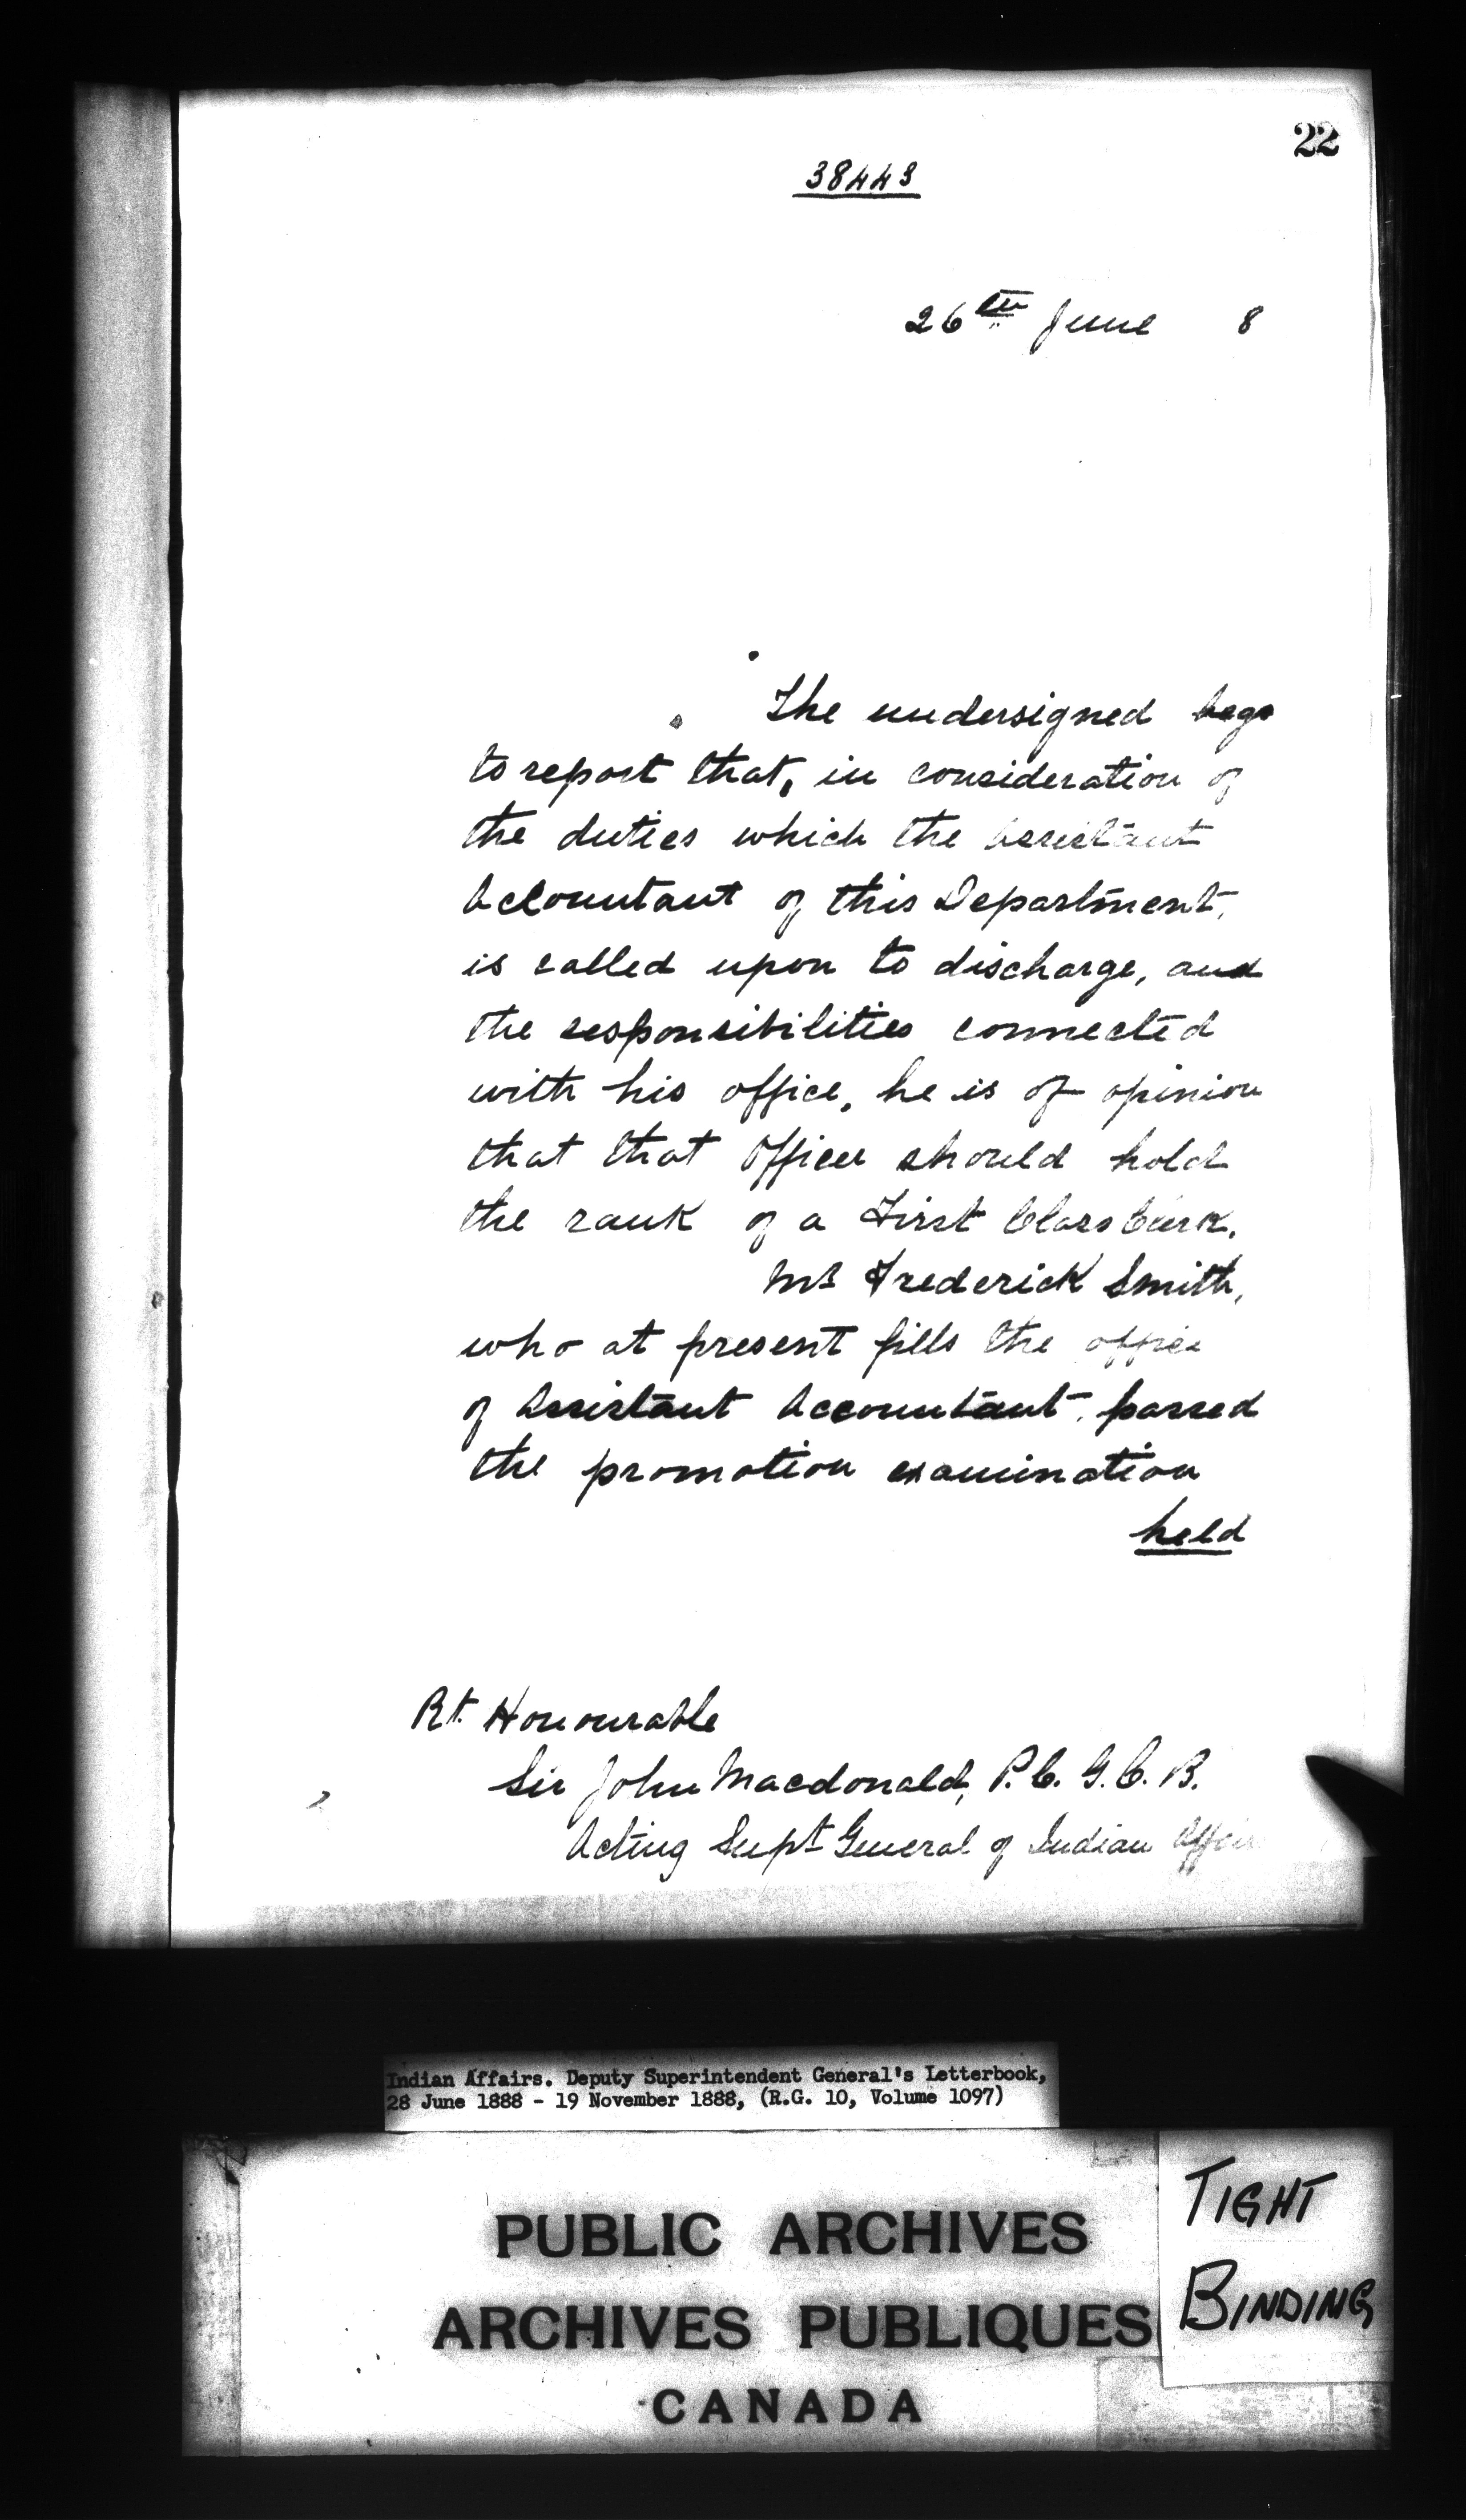 22
38443
26th June 8
The undersigned begs
to report that, in consideration of
the duties which the Assistant
Accountant of this Department,
is called upon to discharge, and
the responsibilities connected
with his office, he is of opinion
that that Officer should hold
the rank of a First Class Clerk.
Mr Frederick Smith,
who at present fills the office
of Assistant Accountant, passed
the promotion examination
held
Rt. Honourable
Sir John Macdonald, P.C. G.C.B.
Acting Supt General of Indian Affairs
Indian Affairs. Deputy Superintendent General's Letterbook,
28 June 1888 - 19 November 1888, (R.G. 10, Volume 1097)
PUBLIC ARCHIVES
ARCHIVES PUBLIQUES
CANADA
TIGHT
BINDING